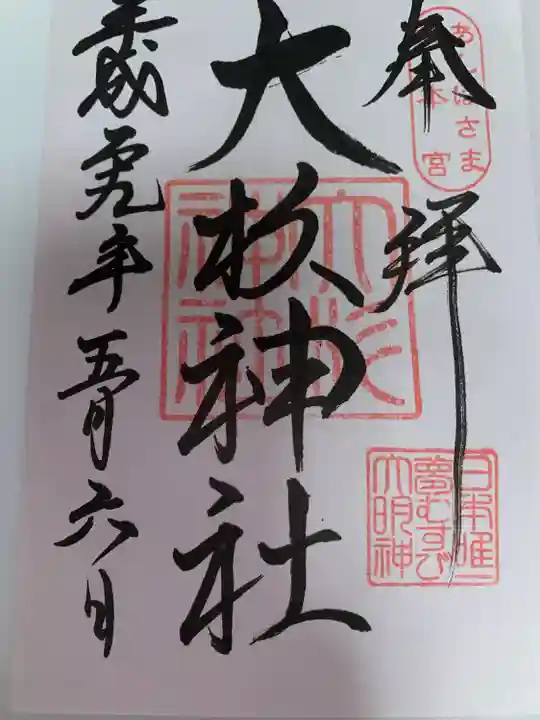 奉拝
あんばさま
本宮
大杉神社
大杉
神社
日本唯一
夢むすび
大明神
五月六日